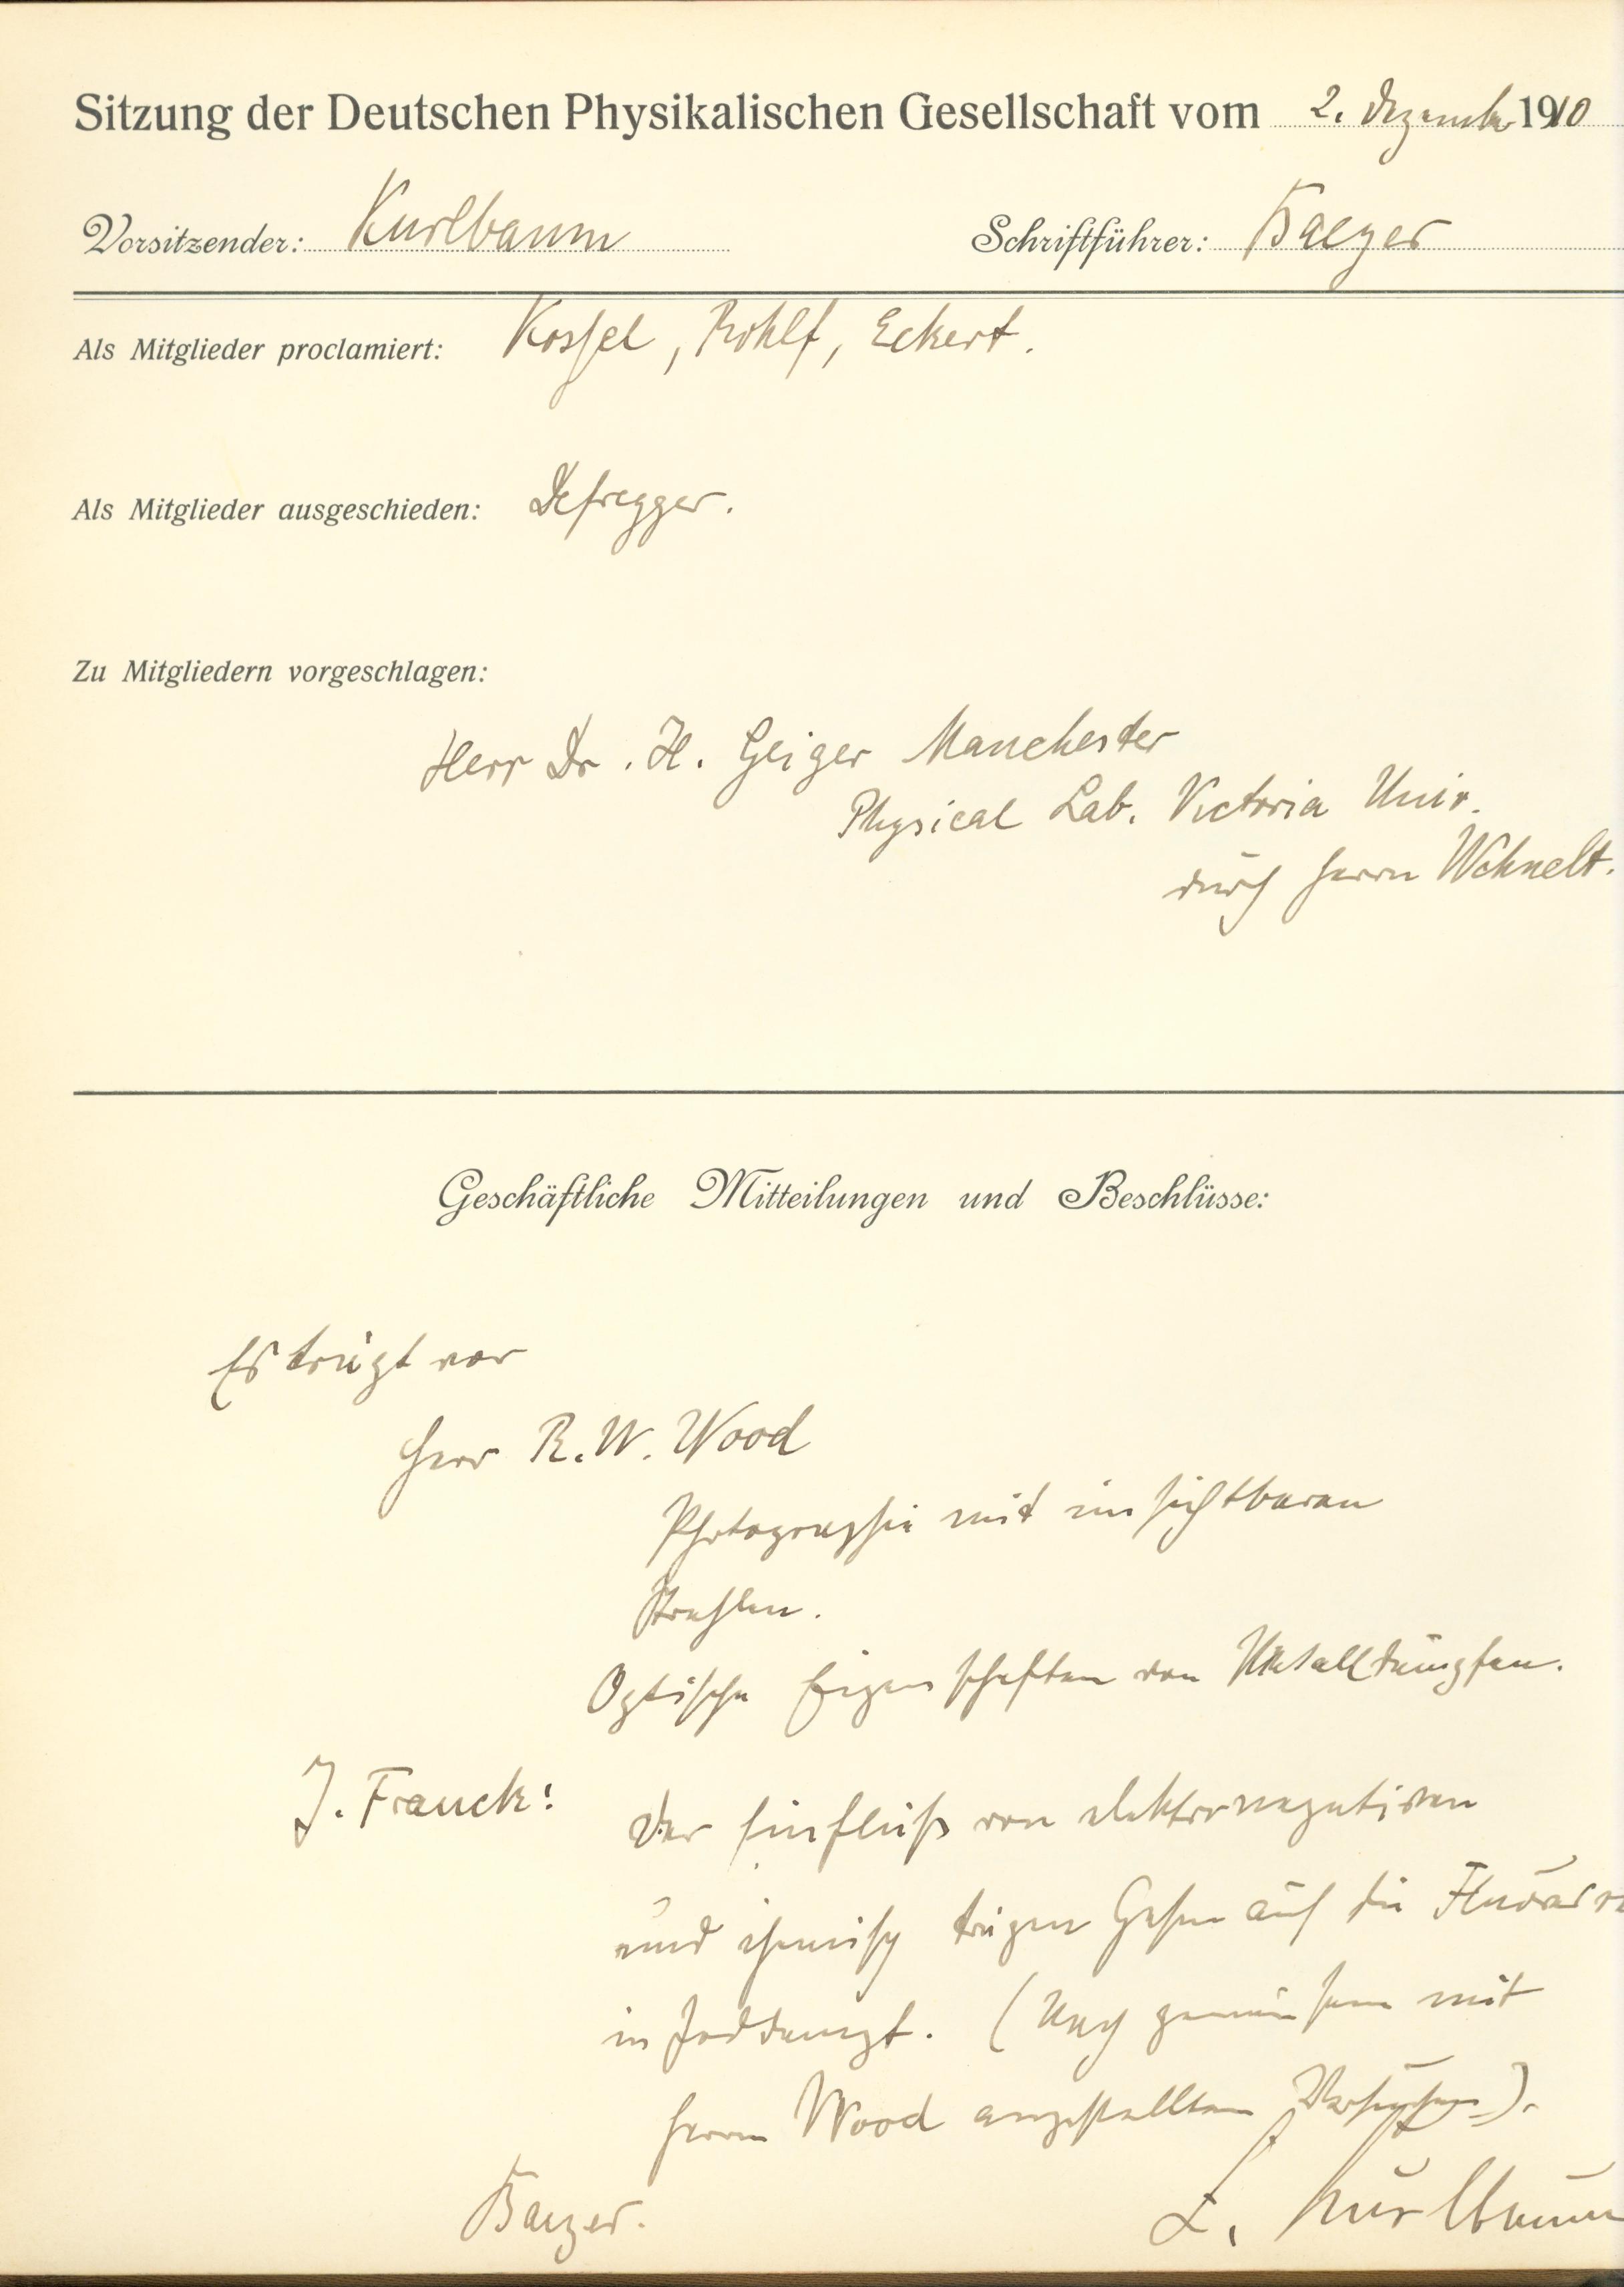 Sitzung der Deutschen Physikalischen Gesellschaft vom 2. Dezember 1910
Vorsitzender: Kurlbaum Schriftführer: Baeyer
Als Mitglieder proclamiert: Kossel, Rohlf, Eckert.
Als Mitglieder ausgeschieden: Defregger.
Zu Mitgliedern vorgeschlagen:
Herr Dr. H. Geiger Manchester
Physical Lab. Victoria Univ.
durch Herrn Wehnelt.
Geschäftliche Mitteilungen und Beschlüsse:
Es trägt vor
Herr R. W. Wood
Photographie mit unsichtbaren
Strahlen.
Optische Eigenschaften von Metalldämpfen.
J. Franck: Der Einfluß von elektronegativen
und chemisch trägen Gasen auf die
in Joddampf. (Nach gemeinsam mit
Herrn Wood angestellten Versuchen).
Baeyer. F. Kurlbaum